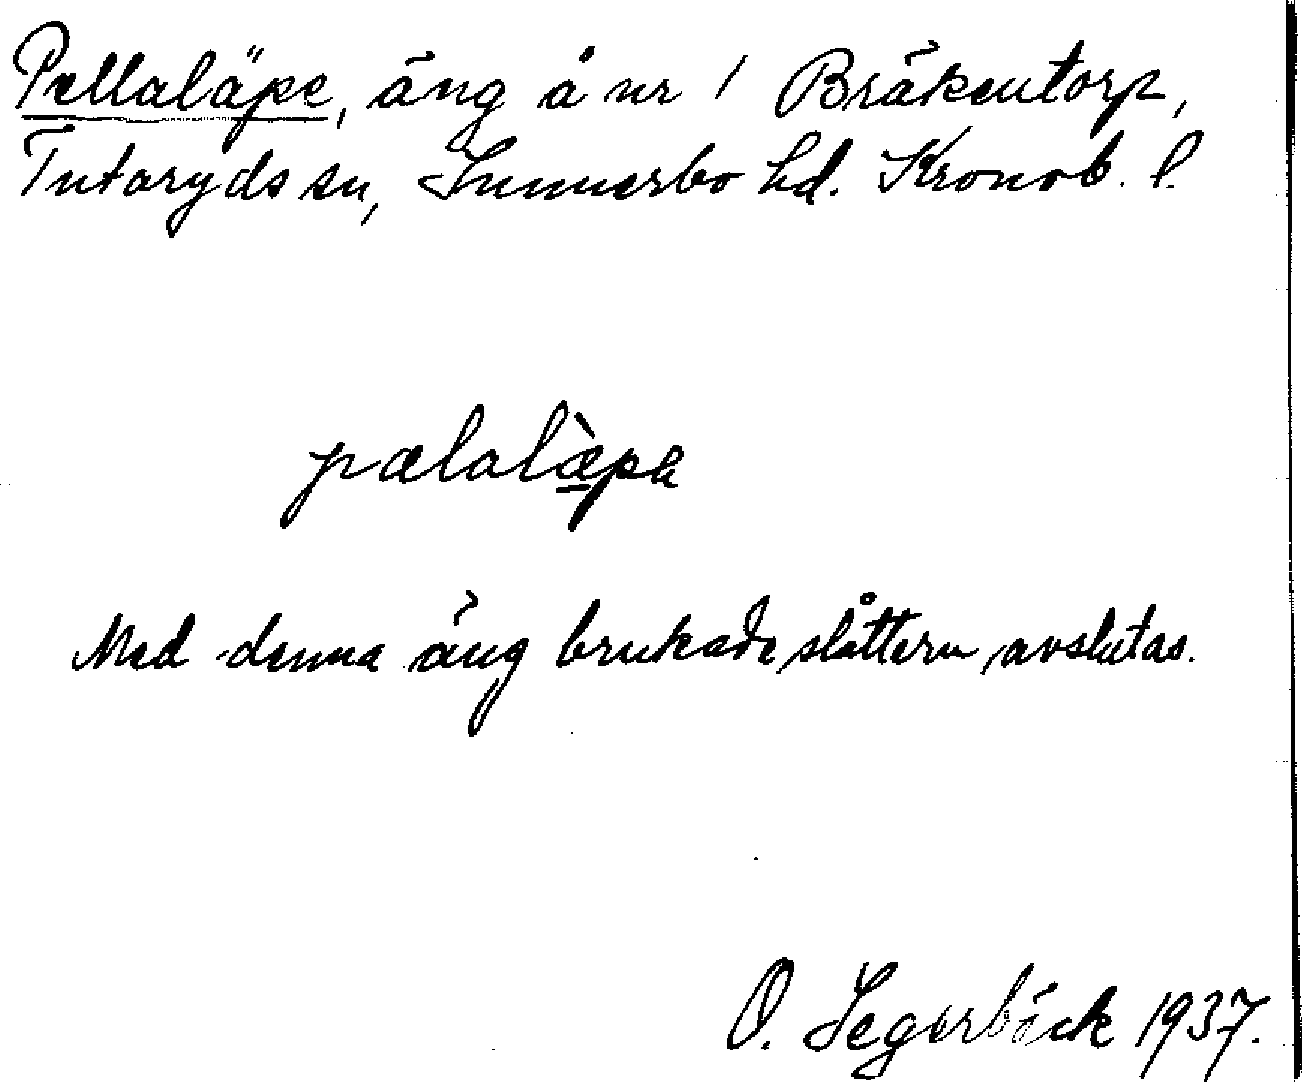 Pellaläpe, äng å nr 1 Bräkentorp,
Tutaryds sn, Sunnerbo hd. Kronob. l.
pælalæ̀pa
Med denna äng brukade slåttern avslutas.
O. Segerbäck 1937.